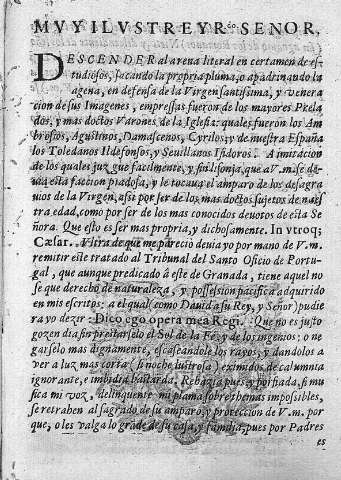 MVY ILVSTRE Y R.do SENOR,
DESCENDER al arena literal en certamen de es-
tudiosos, sacando la propria pluma, o apadrinando la
agena, en defensa de la Virgen santissima, y venera
cion de sus Imagenes, empressas fueron de los mayores Prela
dos, y mas doctos Varones de la Iglesia: quales fueron los Am
brosios, Agustinos, Damascenos, Cyrilos; y de nuestra España
los Toledanos Ildefonsos, y Sevillanos Isidoros. A imitacion
de los quales juzgue facilmente, y sin lisonja, que a V.m. se de-
uia esta faccion piadosa, y le tocaua el amparo de los desagra
uios de la Virgen, assi por ser de los mas doctos sujetos de nues
tra edad, como por ser de los mas conocidos deuotos de esta Se
ñora. Que esto es ser mas propria, y dichosamente. In vtroq;
Cæsar. Vltra de que me pareciò deuia yo por mano de V.m.
remitir este tratado al Tribunal del Santo Oficio de Portu-
gal, que aunque predicado à este de Granada, tiene aquel no
se que derecho de naturaleza, y possession pacifica adquirido
en mis escritos: a el qual como Dauid a su Rey, y Señor) pudie
ra yo dezir: Dico ego opera mea Regi. Que no es justo
gozen dia sin el Sol de la Fè, y de los ingenios: o ne
garselo mas dignamente, escaseandole los rayos, y dandolos a
ver a luz mas corta (si noche lustrosa) eximidos de calumnia
ignorante, e imbidia bastarda. pues y porfiada, si mu
fica mi voz, delinquente mi pluma sobre themas impossibles,
se retrahen al sagrado de su amparo, y proteccion de V.m. por
que, o les valga lo grãde de su casa, y familia, pues por Padres
es